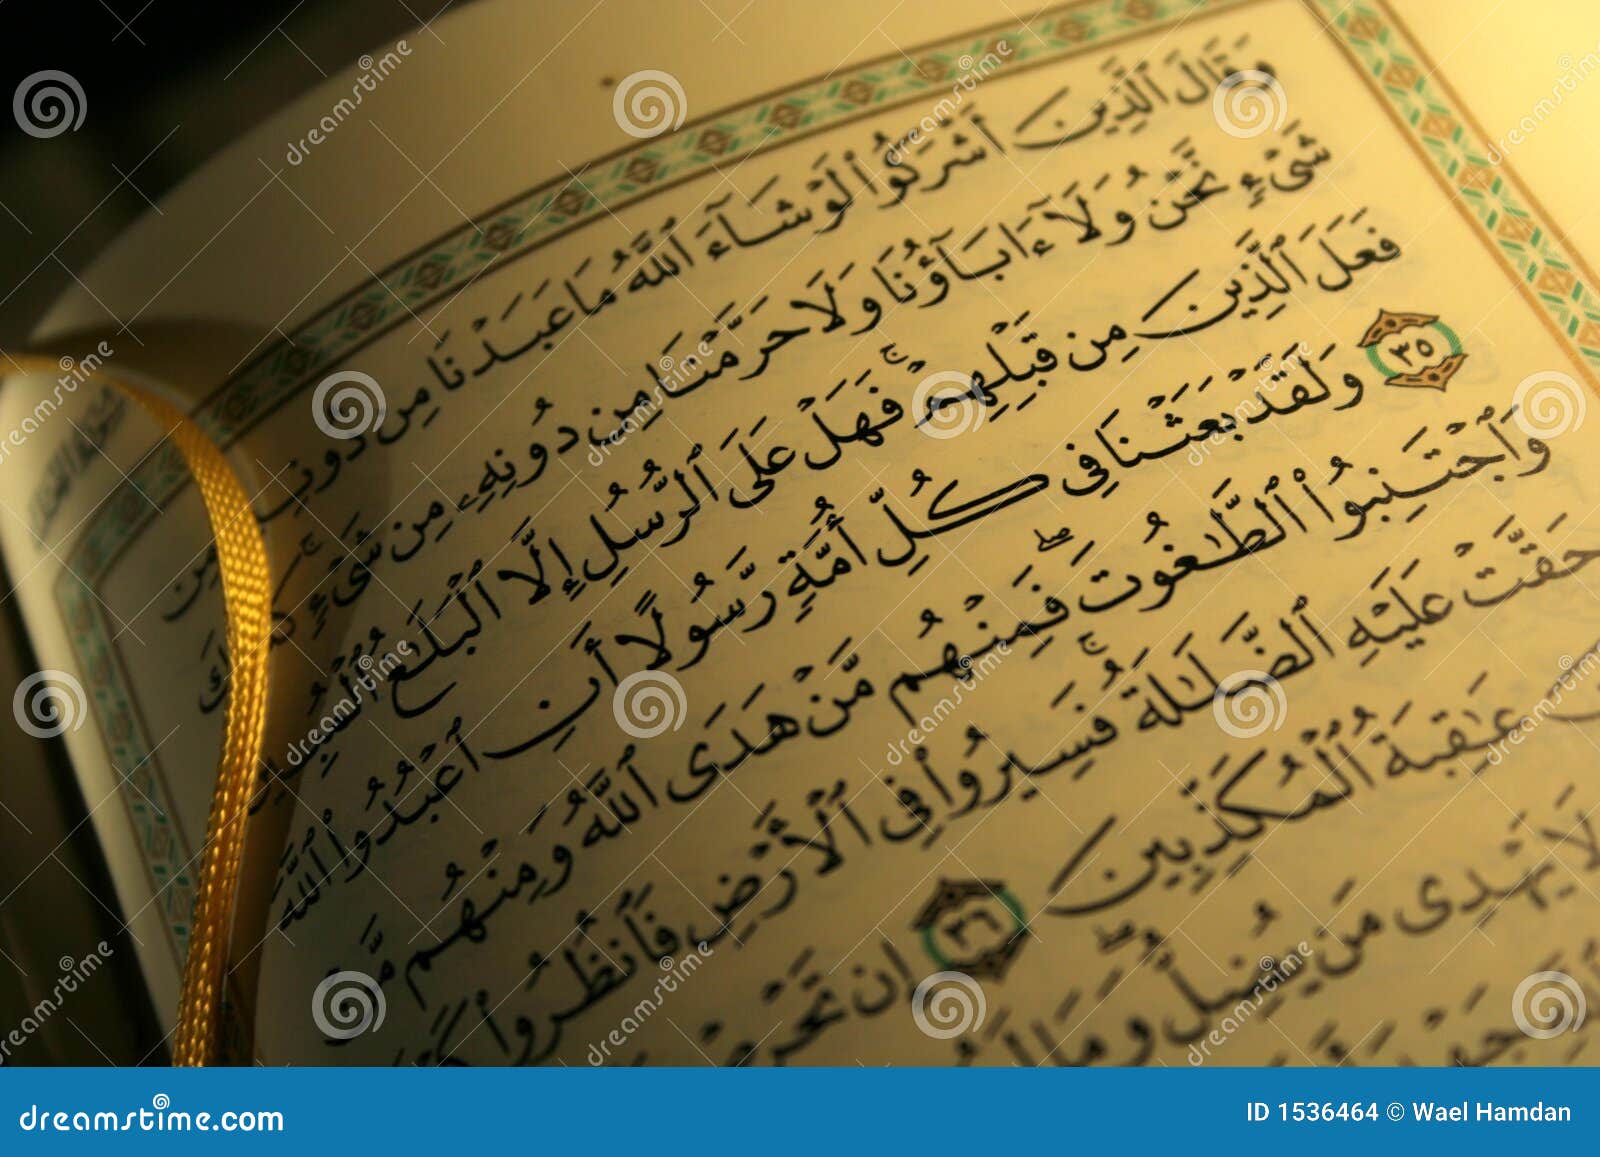 وَقَالَ ٱلَّذِينَ أَشْرَكُوا۟ لَوْ شَآءَ ٱللَّهُ مَا عَبَدْنَا مِن دُونِهِۦ مِن
شَىْءٍ نَّحْنُ وَلَآ ءَابَآؤُنَا وَلَا حَرَّمْنَا مِن دُونِهِۦ مِن شَىْءٍ ۚ كَذَٰلِكَ
فَعَلَ ٱلَّذِينَ مِن قَبْلِهِمْ ۚ فَهَلْ عَلَى ٱلرُّسُلِ إِلَّا ٱلْبَلَٰغُ ٱلْمُبِينُ
٣٥ وَلَقَدْ بَعَثْنَا فِى كُلِّ أُمَّةٍ رَّسُولًا أَنِ ٱعْبُدُوا۟ ٱللَّهَ
وَٱجْتَنِبُوا۟ ٱلطَّٰغُوتَ ۖ فَمِنْهُم مَّنْ هَدَى ٱللَّهُ وَمِنْهُم مَّنْ
حَقَّتْ عَلَيْهِ ٱلضَّلَٰلَةُ ۚ فَسِيرُوا۟ فِى ٱلْأَرْضِ فَٱنظُرُوا۟
عَٰقِبَةُ ٱلْمُكَذِّبِينَ ٣٦ إِن
لَا يَهْدِى مَن يُضِلُّ ۖ وَمَا
dreamstime
dreamstime.com
ID 1536464 © Wael Hamdan